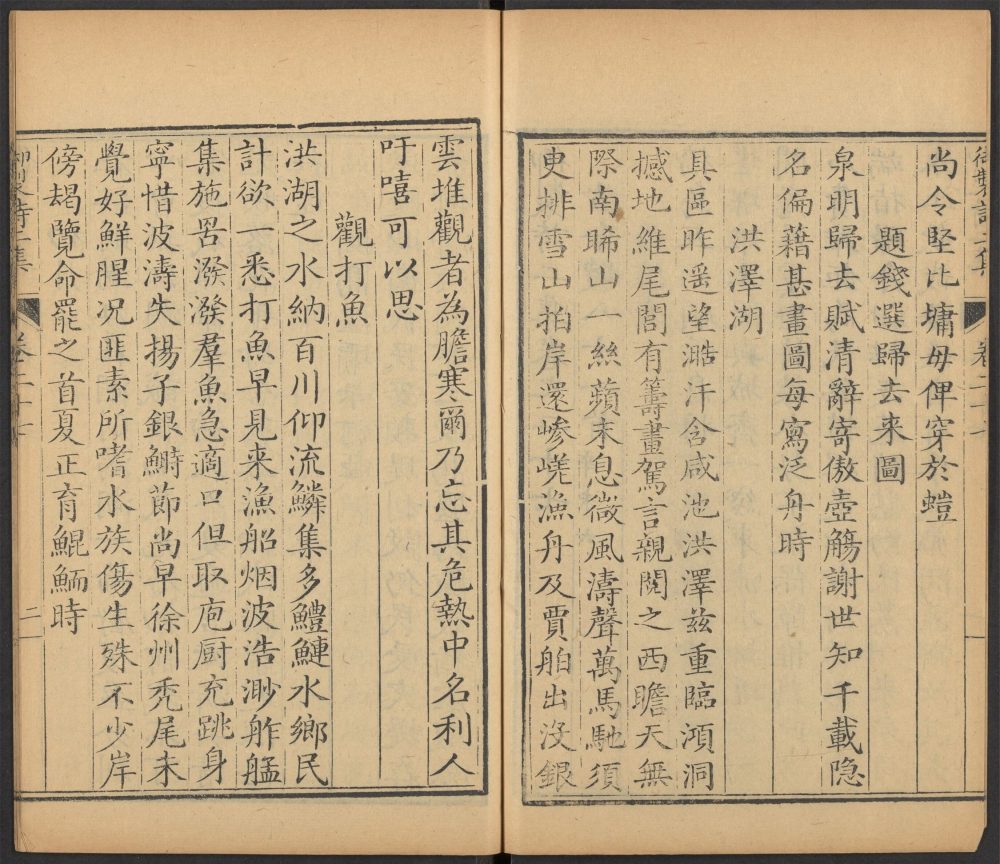 御製詩二集　卷二十七　一
尚令堅比墉毋俾穿於螘
題錢選歸去來圖
泉明歸去賦清辭寄傲壺觴謝世知千載隐
名偏藉甚畫圖每寫泛舟時
洪澤湖
具區昨遥望澔汗含咸池洪澤兹重臨澒洞
撼地維尾閭有籌畫駕言親閱之西瞻天無
際南睎山一絲蘋末息微風濤聲萬馬馳須
臾排雪山拍岸還嵾嵯漁舟及賈舶出沒銀
雲堆觀者為膽寒爾乃忘其危熱中名利人
吁嘻可以思
觀打魚
洪湖之水納百川仰流鱗集多鱧鰱水鄉民
計欲一悉打魚早見来漁船烟波浩渺舴艋
集施罟潑潑羣魚急適口但取庖厨充跳身
寧惜波濤失揚子銀鰣節尚早徐州秃尾未
覺好鮮腥况匪素所嗜水族傷生殊不少岸
傍朅覽命罷之首夏正育鯤鮞時
二